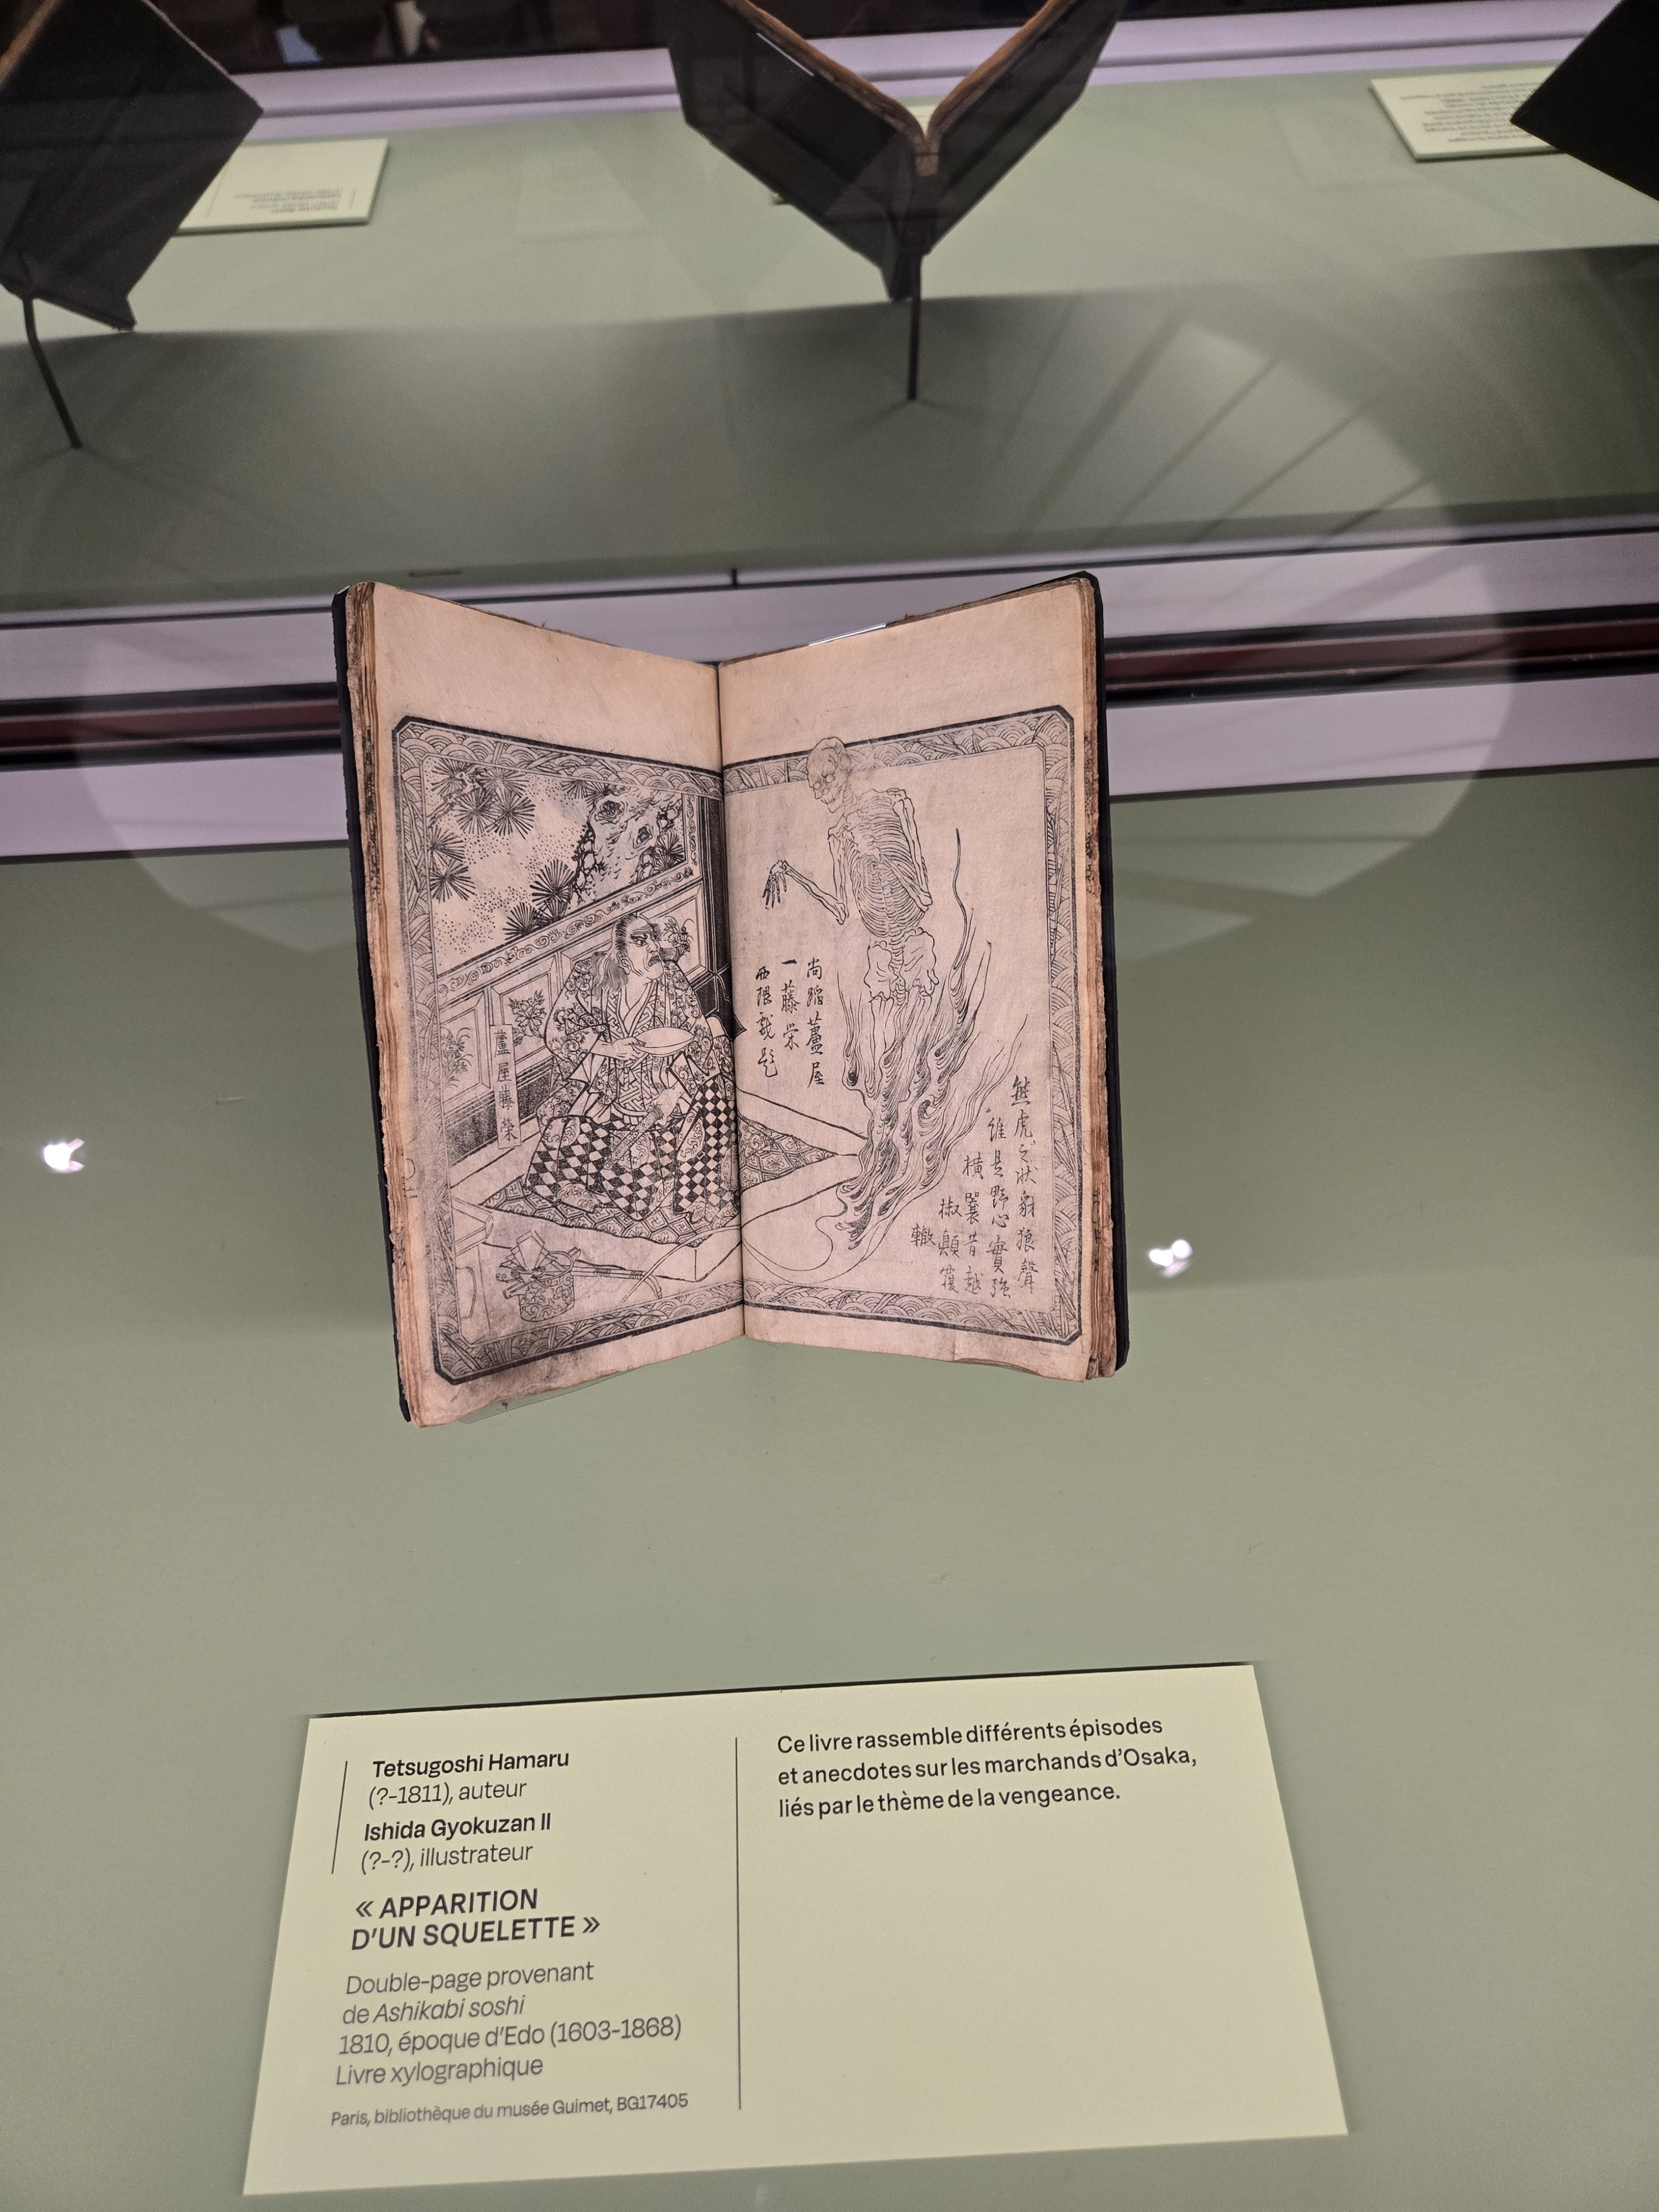 尚蹈蘆屋
一藤栄
西隈散題
熊虎之状豺狼聲
誰是野心實強
横襄昔越
椒顛覆
轍
蘆屋藤榮
Tetsugoshi Hamaru
(?-1811), auteur
Ishida Gyokuzan II
(?-?), illustrateur
« APPARITION
D'UN SQUELETTE »
Double-page provenant
de Ashikabi soshi
1810, époque d'Edo (1603-1868)
Livre xylographique
Paris, bibliothèque du musée Guimet, BG17405
Ce livre rassemble différents épisodes
et anecdotes sur les marchands d'Osaka,
liés par le thème de la vengeance.